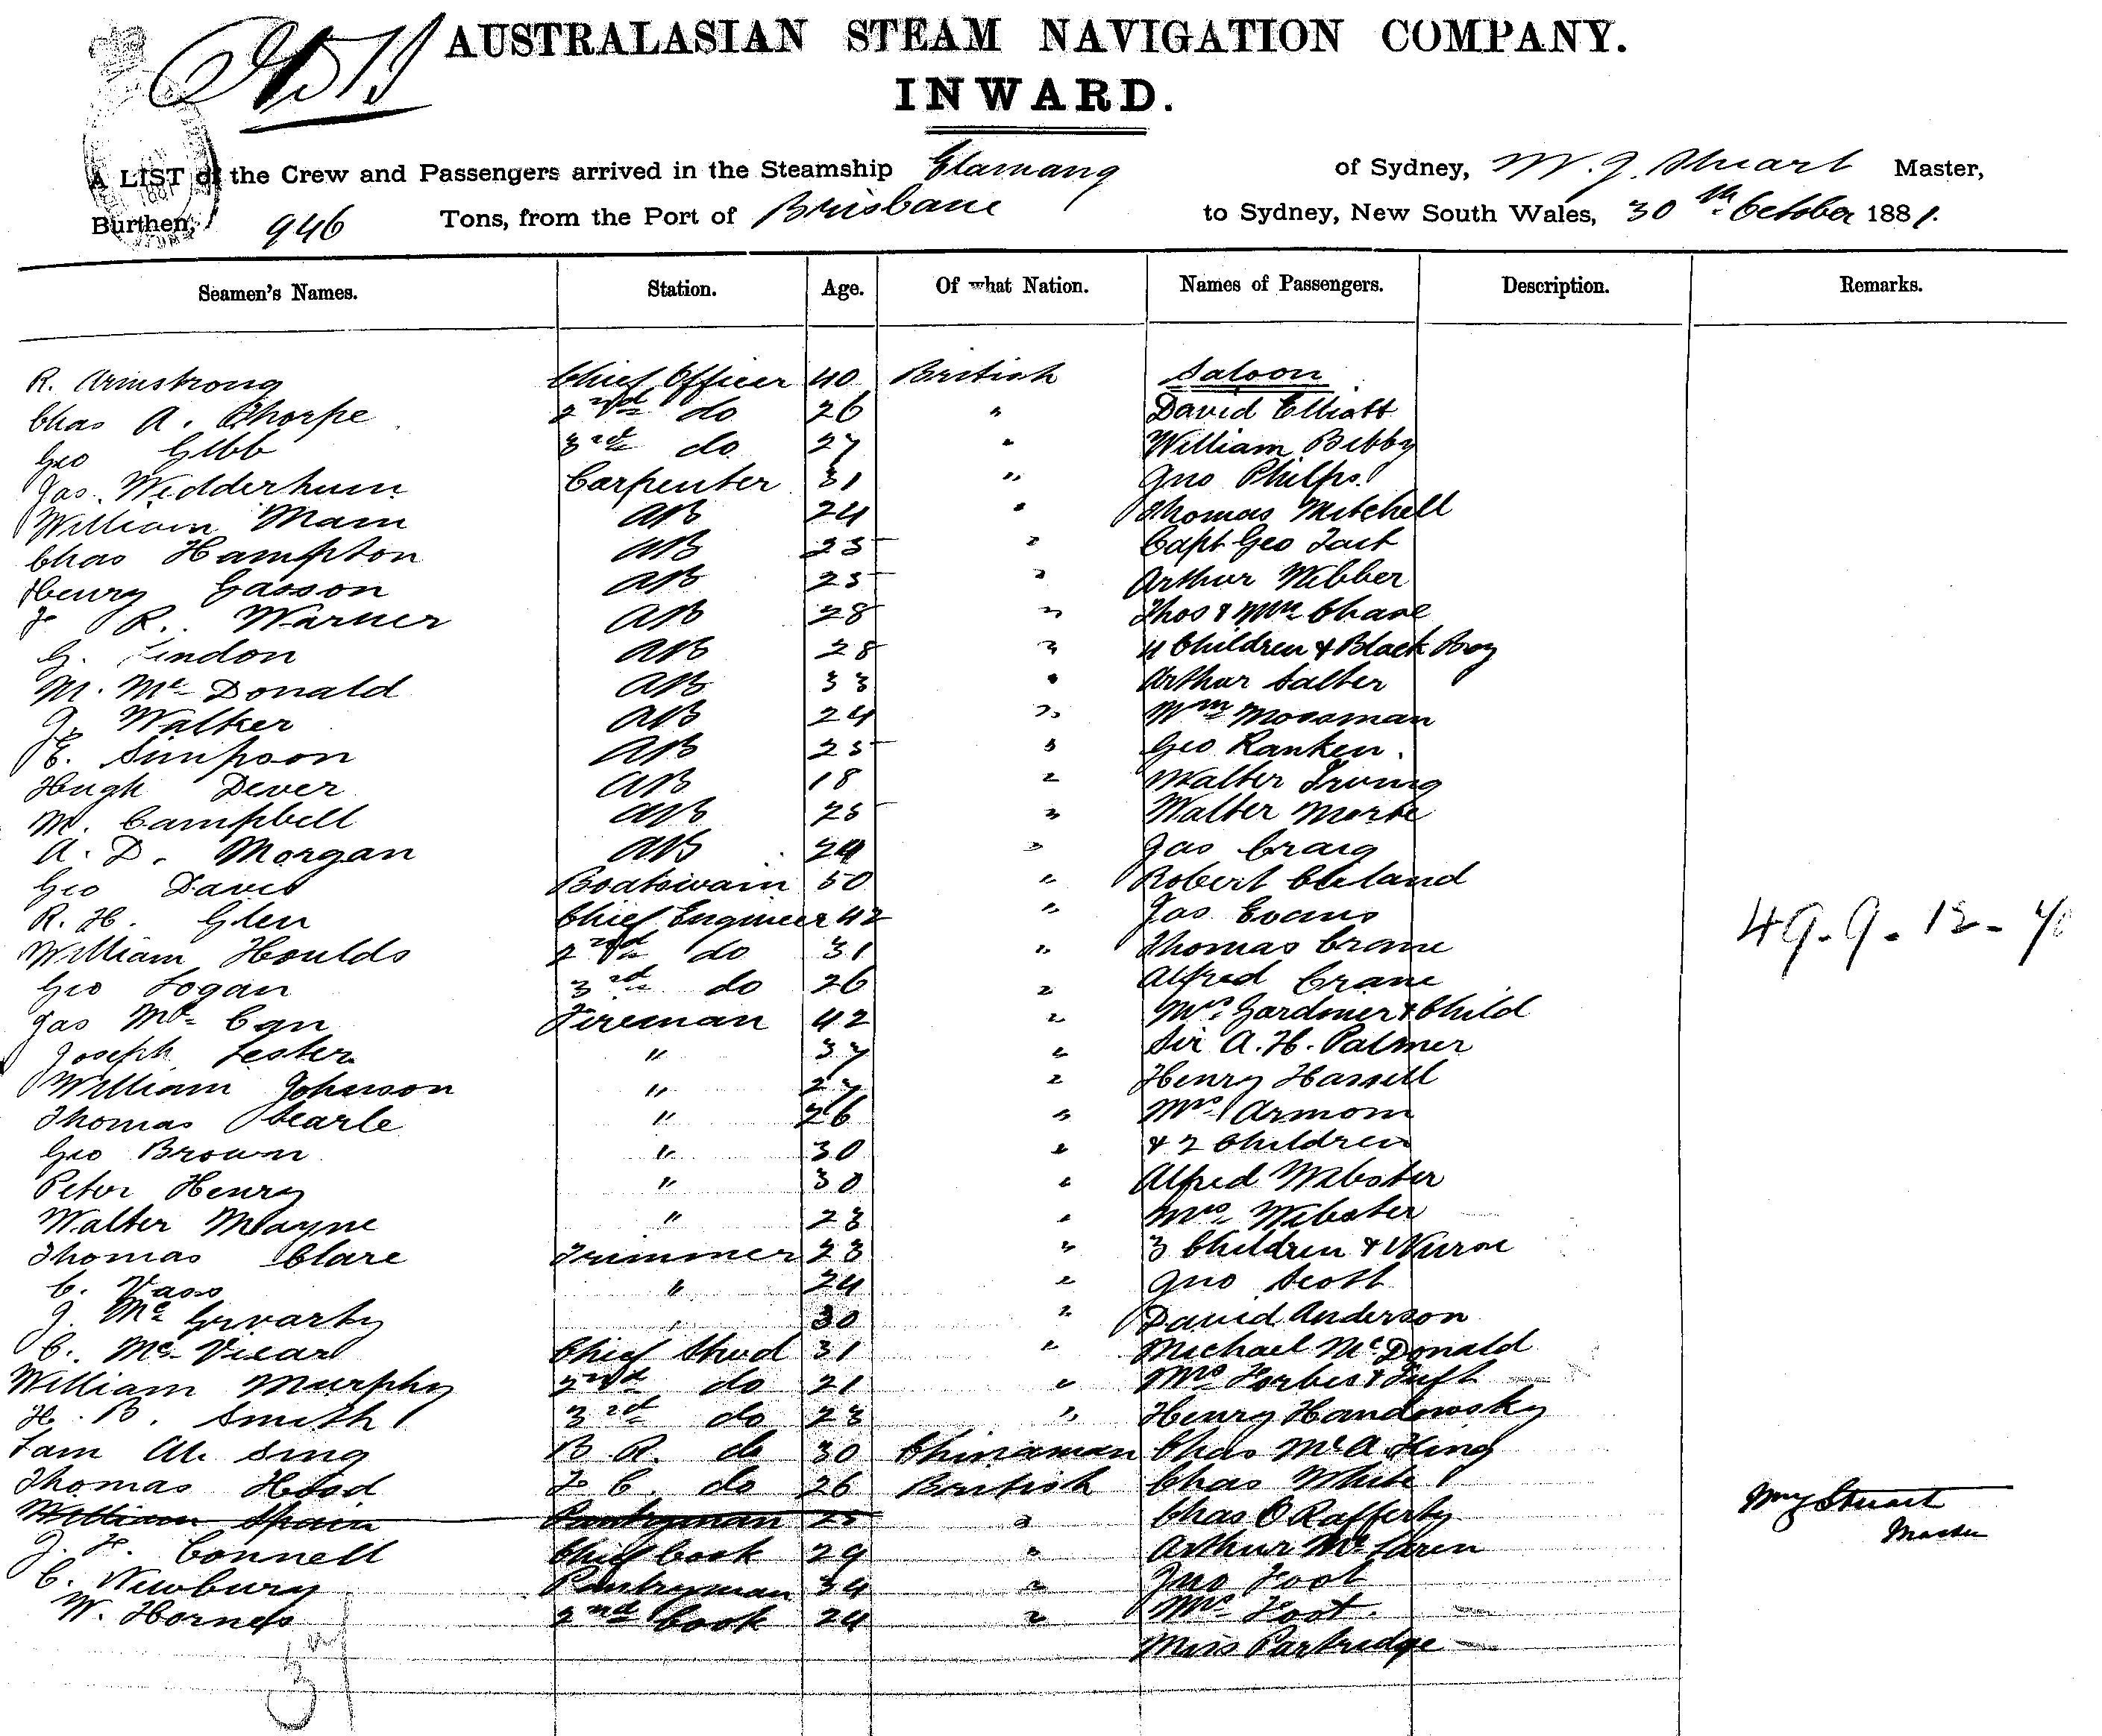 AUSTRALASIAN STEAM NAVIGATION COMPANY.
INWARD.
A LIST of the Crew and Passengers arrived in the Steamship Elamang of Sydney, W. J. Stuart Master,
Burthen, 946 Tons, from the Port of Brisbane to Sydney, New South Wales, 30th October 1881.
Seamen's Names. Station. Age. Of what Nation. Names of Passengers. Description. Remarks.
R. Armstrong Chief Officer 40 British Saloon
Chas A. Thorpe 2nd do 26 " David Elliott
Geo Gibb 3rd do 27 " William Bibby
Jas. Wedderhurn Carpenter 31 " Jno Philps.
William Mam AB 24 " Thomas Mitchell
Chas Hampton AB 25 " Capt Geo Tait
Henry Gasson AB 25 " Arthur Webber
J R. Warner AB 28 " Thos & Mrs Chase
G. Lindon AB 28 " 4 Children & Black Boy
M. Mc Donald AB 33 " Arthur Salter
J. Walker AB 24 " Wm Mossman
E. Simpson AB 25 " Geo Ranken.
Hugh Dever AB 18 " Walter Irving
M. Campbell AB 25 " Walter
A. D. Morgan AB 24 " Jas Craig
Geo Davis Boatswain 50 " Robert Cleland
R. H. Glen Chief Engineer 42 " Jas Evans
William Houlds 2nd do 31 " Thomas Crane
49. 9. 12.
Geo Logan 3rd do 26 " Alfred Crane
Jas Mc Can Fireman 42 " Mrs Gardiner & Child
Joseph Lester " 37 " Sir A. H. Palmer
William Johnson " 27 " Henry Hassell
Thomas Searle " 26 " Mrs
Geo Brown " 30 " & 2 Children
Peter Henry " 30 " Alfred Webster
Walter Mayne " 23 " Mrs Webster
Thomas Clare Trimmer 23 " 3 Children & Nurse
C. Vass " 24 " Jno Scott
J. Mc " 30 " David Anderson
C. Mc Vicar Chief Stwd 31 " Michael McDonald
William Murphy 2nd do 21 " Mrs Forbes &
H. B. Smith 3rd do 23 " Henry Handowsky
Lam Ah Sing B R. do 30 Chinaman Chas McA. King
Thomas Hood F C. do 26 British Chas White
William Spain Pantryman 25 " Chas O Rafferty
Wm J Stuart
Master
J. F. Connell Chief Cook 29 " Arthur Mc Laren
C. Newbury Pantryman 34 " Jno Foot
W. Horness 2nd Cook 24 " Mrs Foot.
Miss Partridge
37